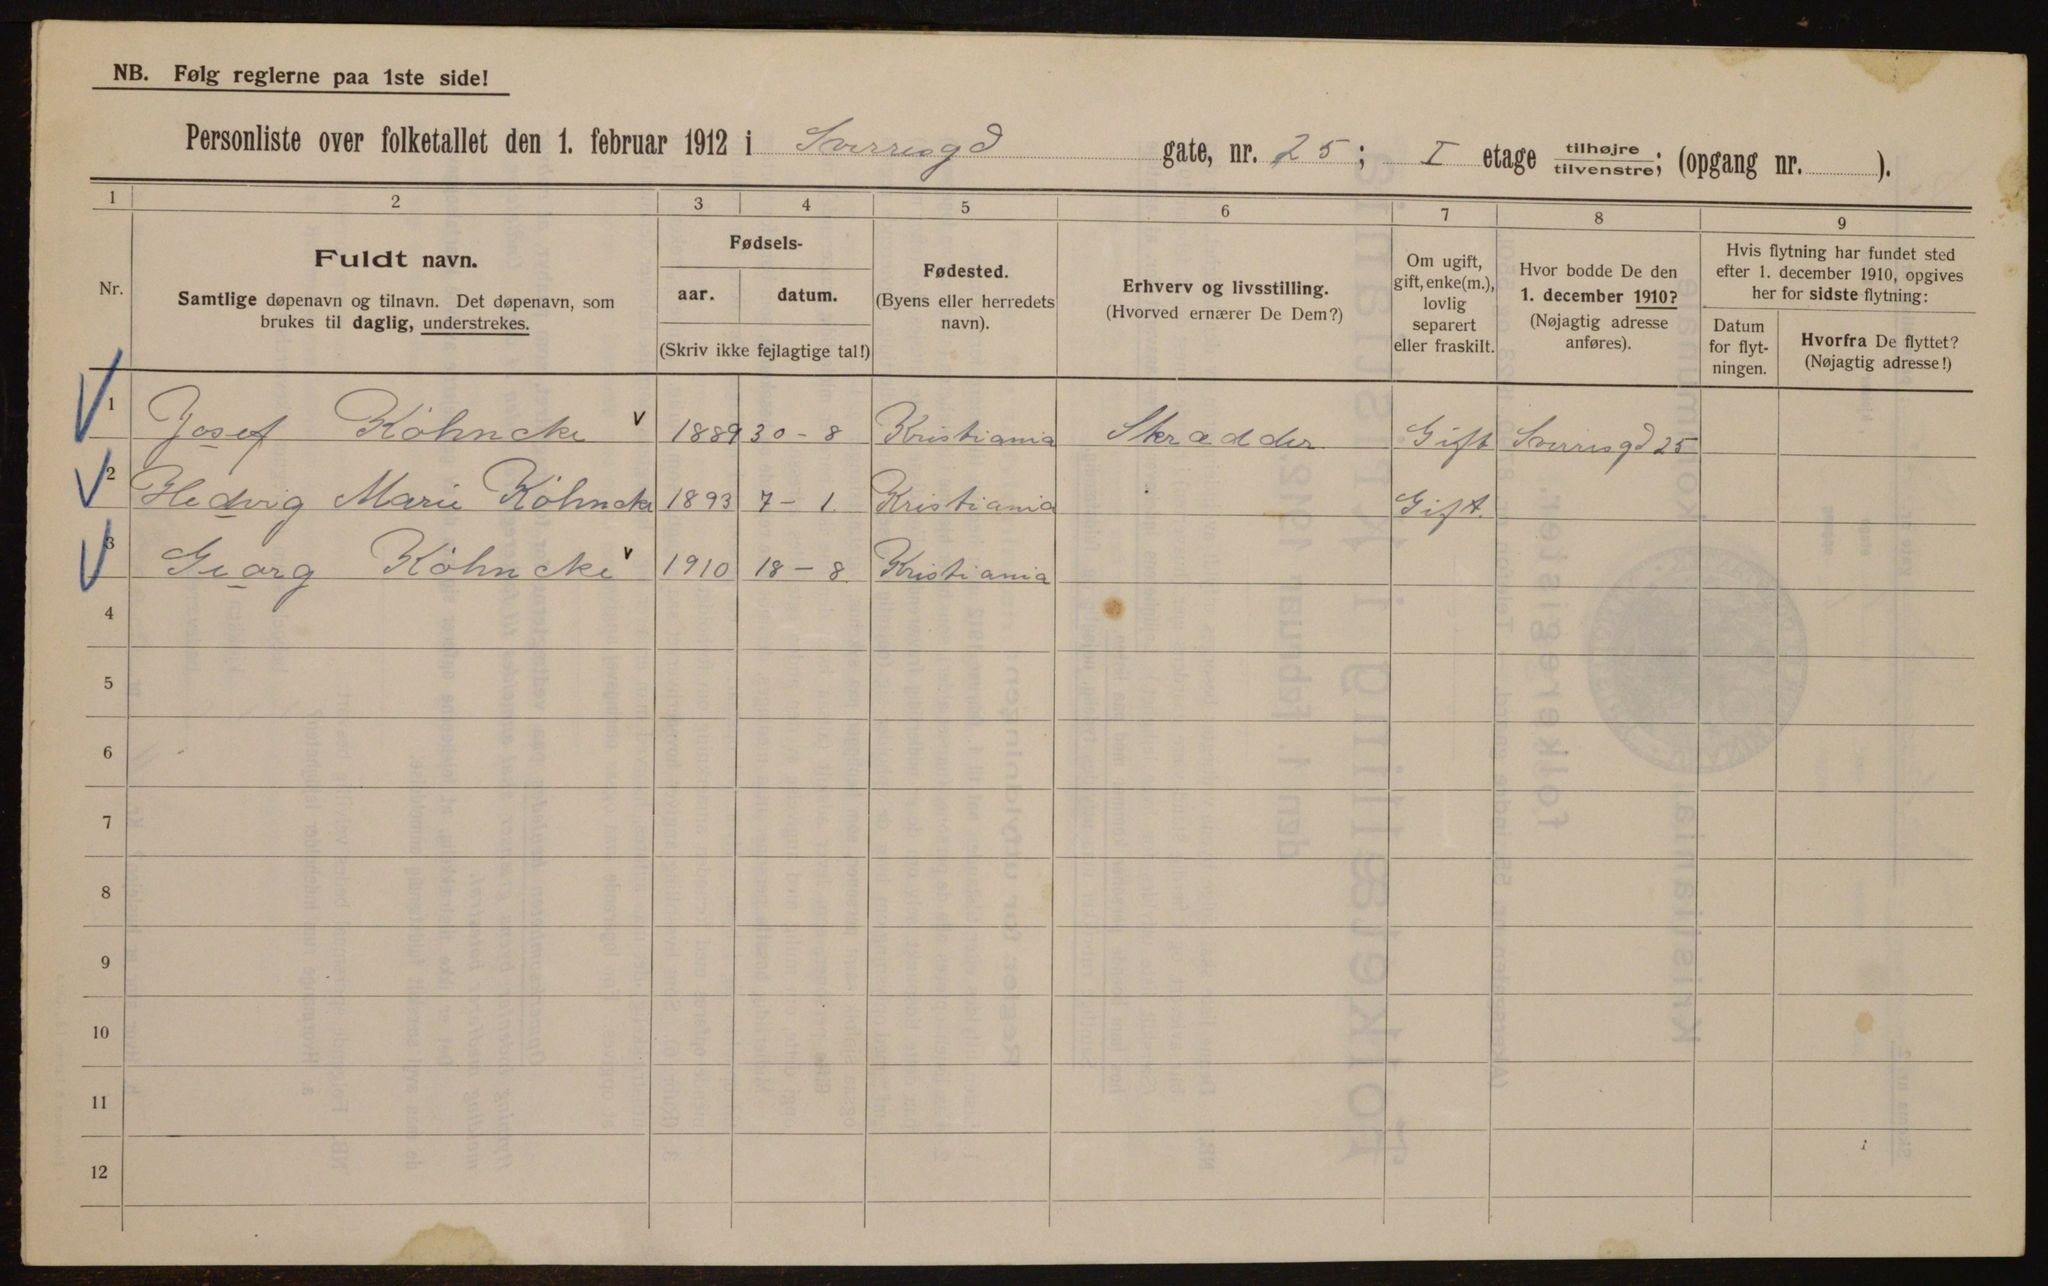 NB. Følg reglerne paa 1ste side!
Personliste over folketallet den 1. februar 1912 i Sverresgd gate, nr. 25; I etage tilhøjre tilvenstre; (opgang nr. ).
1 2 3 4 5 6 7 8 9
Nr.
Fuldt navn.
Samtlige døpenavn og tilnavn. Det døpenavn, som
brukes til daglig, understrekes.
Fødsels-
aar. datum.
(Skriv ikke fejlagtige tal!)
Fødested.
(Byens eller herredets
navn).
Erhverv og livsstilling.
(Hvorved ernærer De Dem?)
Om ugift,
gift, enke(m.),
lovlig
separert
eller fraskilt.
Hvor bodde De den
1. december 1910?
(Nøjagtig adresse
anføres).
Hvis flytning har fundet sted
efter 1. december 1910, opgives
her for sidste flytning:
Datum
for flyt-
ningen.
Hvorfra De flyttet?
(Nøjagtig adresse!)
1 Josef Köhncke 1889 30-8 Kristiania Skrædder Gift Sverresgd 25
2 Hedvig Marie Köhncke 1893 7-1. Kristiania Gift.
3 Georg Köhncke 1910 18-8. Kristiania
4
5
6
7
8
9
10
11
12